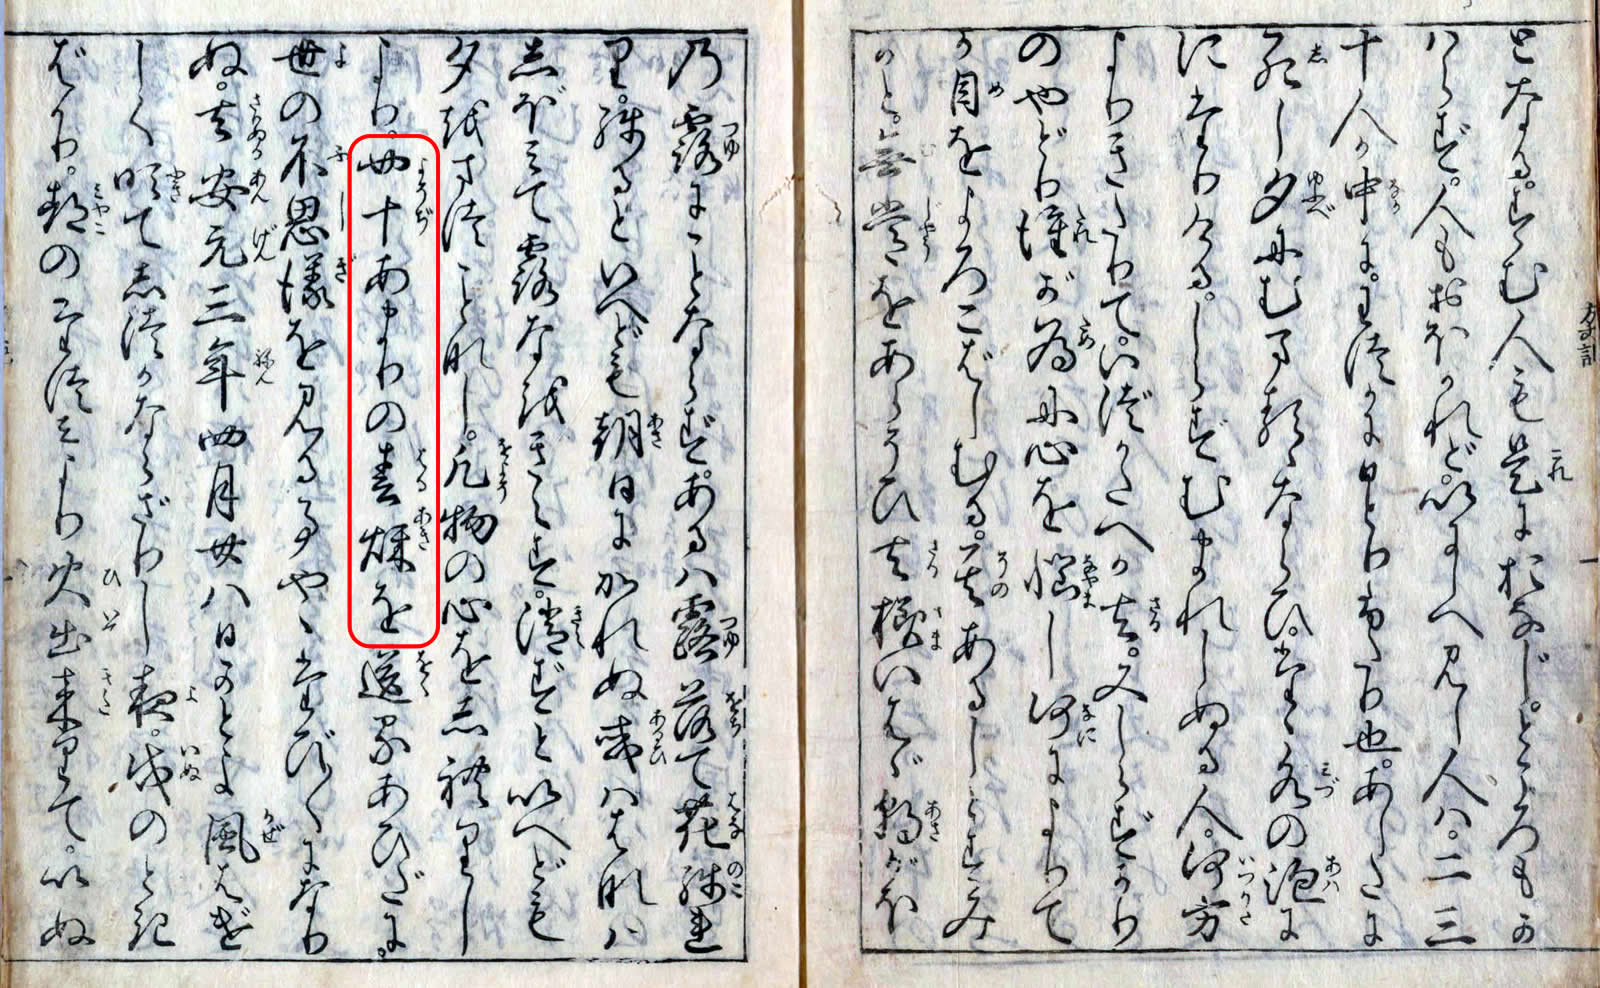 となる。すむ人も是におなじ。ところもか
はらず。人もおほかれど。いにしへ見し人は。二三
十人か中に。わつかにひとりふたり也。あしたに
死し夕にむまるゝならひ。たゝ水の泡に
にたりける。しらずむまれしぬる人。何方
よりきたりて。いづかたへか去。又しらずかり
のやどり誰が為に心を悩し何によりて
か目をよろこばしむる。其あるじとすみ
かと。無常をあらそひ去様いはゞ朝がほ
方丈記
一
乃露にことならず。あるハ露落て花残れ
り。残るといへども朝日にかれぬ或ハはなハ
しぼみて露なをきえず。消ずといへども
夕をまつことなし。凡物の心をしれりし
より。四十あまりの春秋を送るあひだに。
世の不思議を見る事やゝたび〳〵になり
ぬ。去安元三年四月廿八日かとよ風はげ
しく吹てしづかならざりし夜。戌のとき
ばかり。都のたつみより火出来りて。いぬ